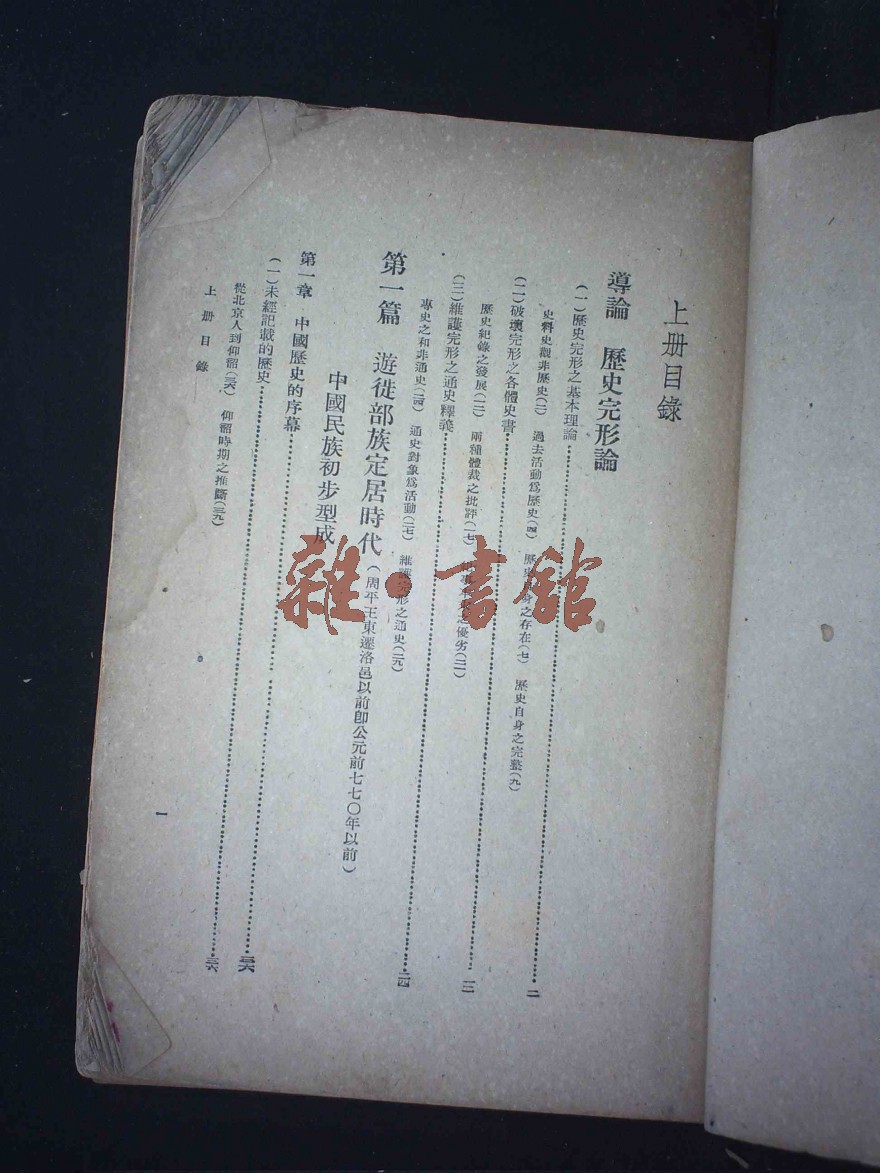 上册目錄
導論　歷史完形論
（一）歷史完形之基本理論……二
史料史觀非歷史（二）　過去活動爲歷史（四）　歷史自身之存在（七）　歷史自身之完整（九）
（二）破壞完形之各體史書……一二
歷史紀錄之發展（一二）　兩種體裁之批評（一七）　之優劣（二一）
（三）維護完形之通史釋義……二四
專史之和非通史（二四）　通史對象爲活動（二七）　維護完形之通史（二九）
第一篇　遊徙部族定居時代（周平王東遷洛邑以前卽公元前七七〇年以前）
中國民族初步型成
第一章　中國歷史的序幕……三六
（一）未經記載的歷史……三六
從北京人到仰韶（三六）　仰韶時期之推斷（三九）
上册目錄
一
雜·書館